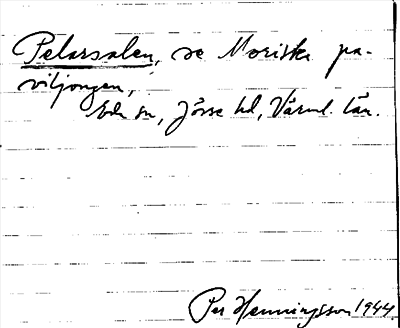 Pelarsalen, se Moriska pa-
viljongen,
Eda sn, Jösse hd, Värml. län.
Per Henningsson 1944